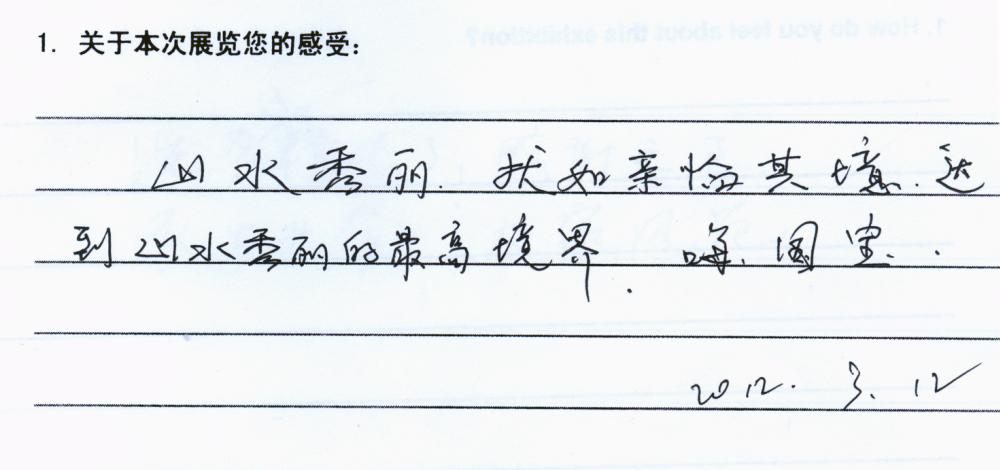 1. 关于本次展览您的感受：
山水秀丽. 犹如亲恰其境. 达
到山水秀丽的最高境界. 国宝.
2012. 3. 12